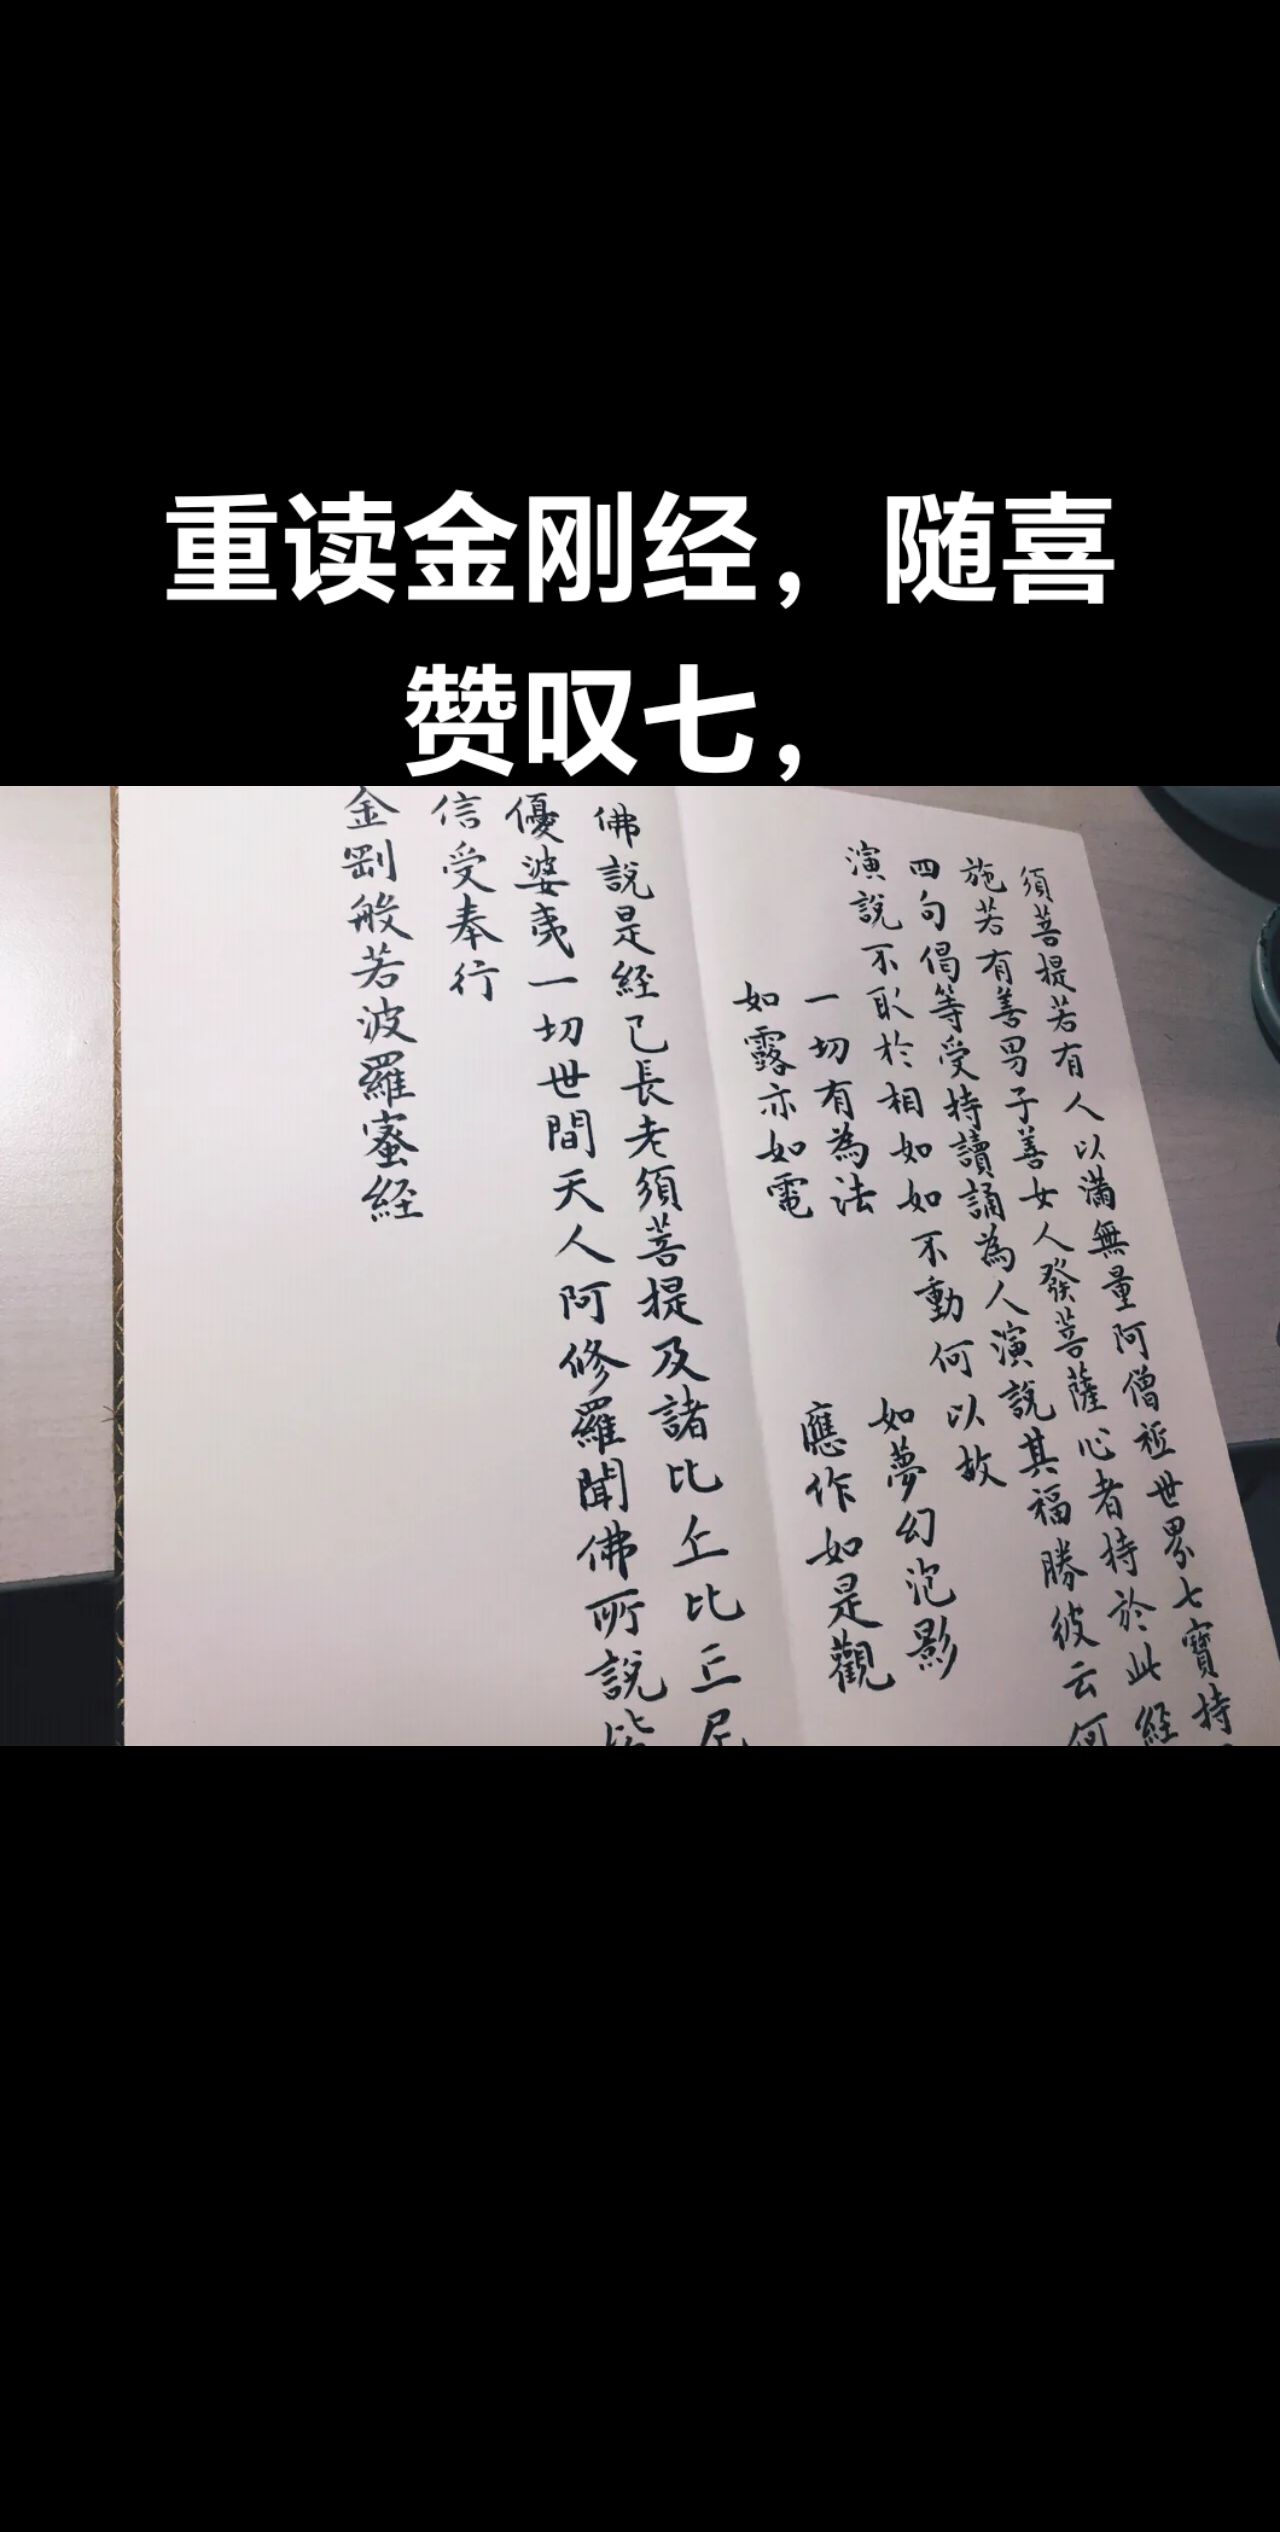 重读金刚经，随喜
赞叹七，
須菩提若有人以滿無量阿僧祇世界七寶持
施若有善男子善女人發菩薩心者持於此經
四句偈等受持讀誦為人演說其福勝彼云何
演說不取於相如如不動何以故
一切有為法 如夢幻泡影
如露亦如電 應作如是觀
佛說是經已長老須菩提及諸比丘比丘尼
優婆夷一切世間天人阿修羅聞佛所說皆
信受奉行
金剛般若波羅蜜經